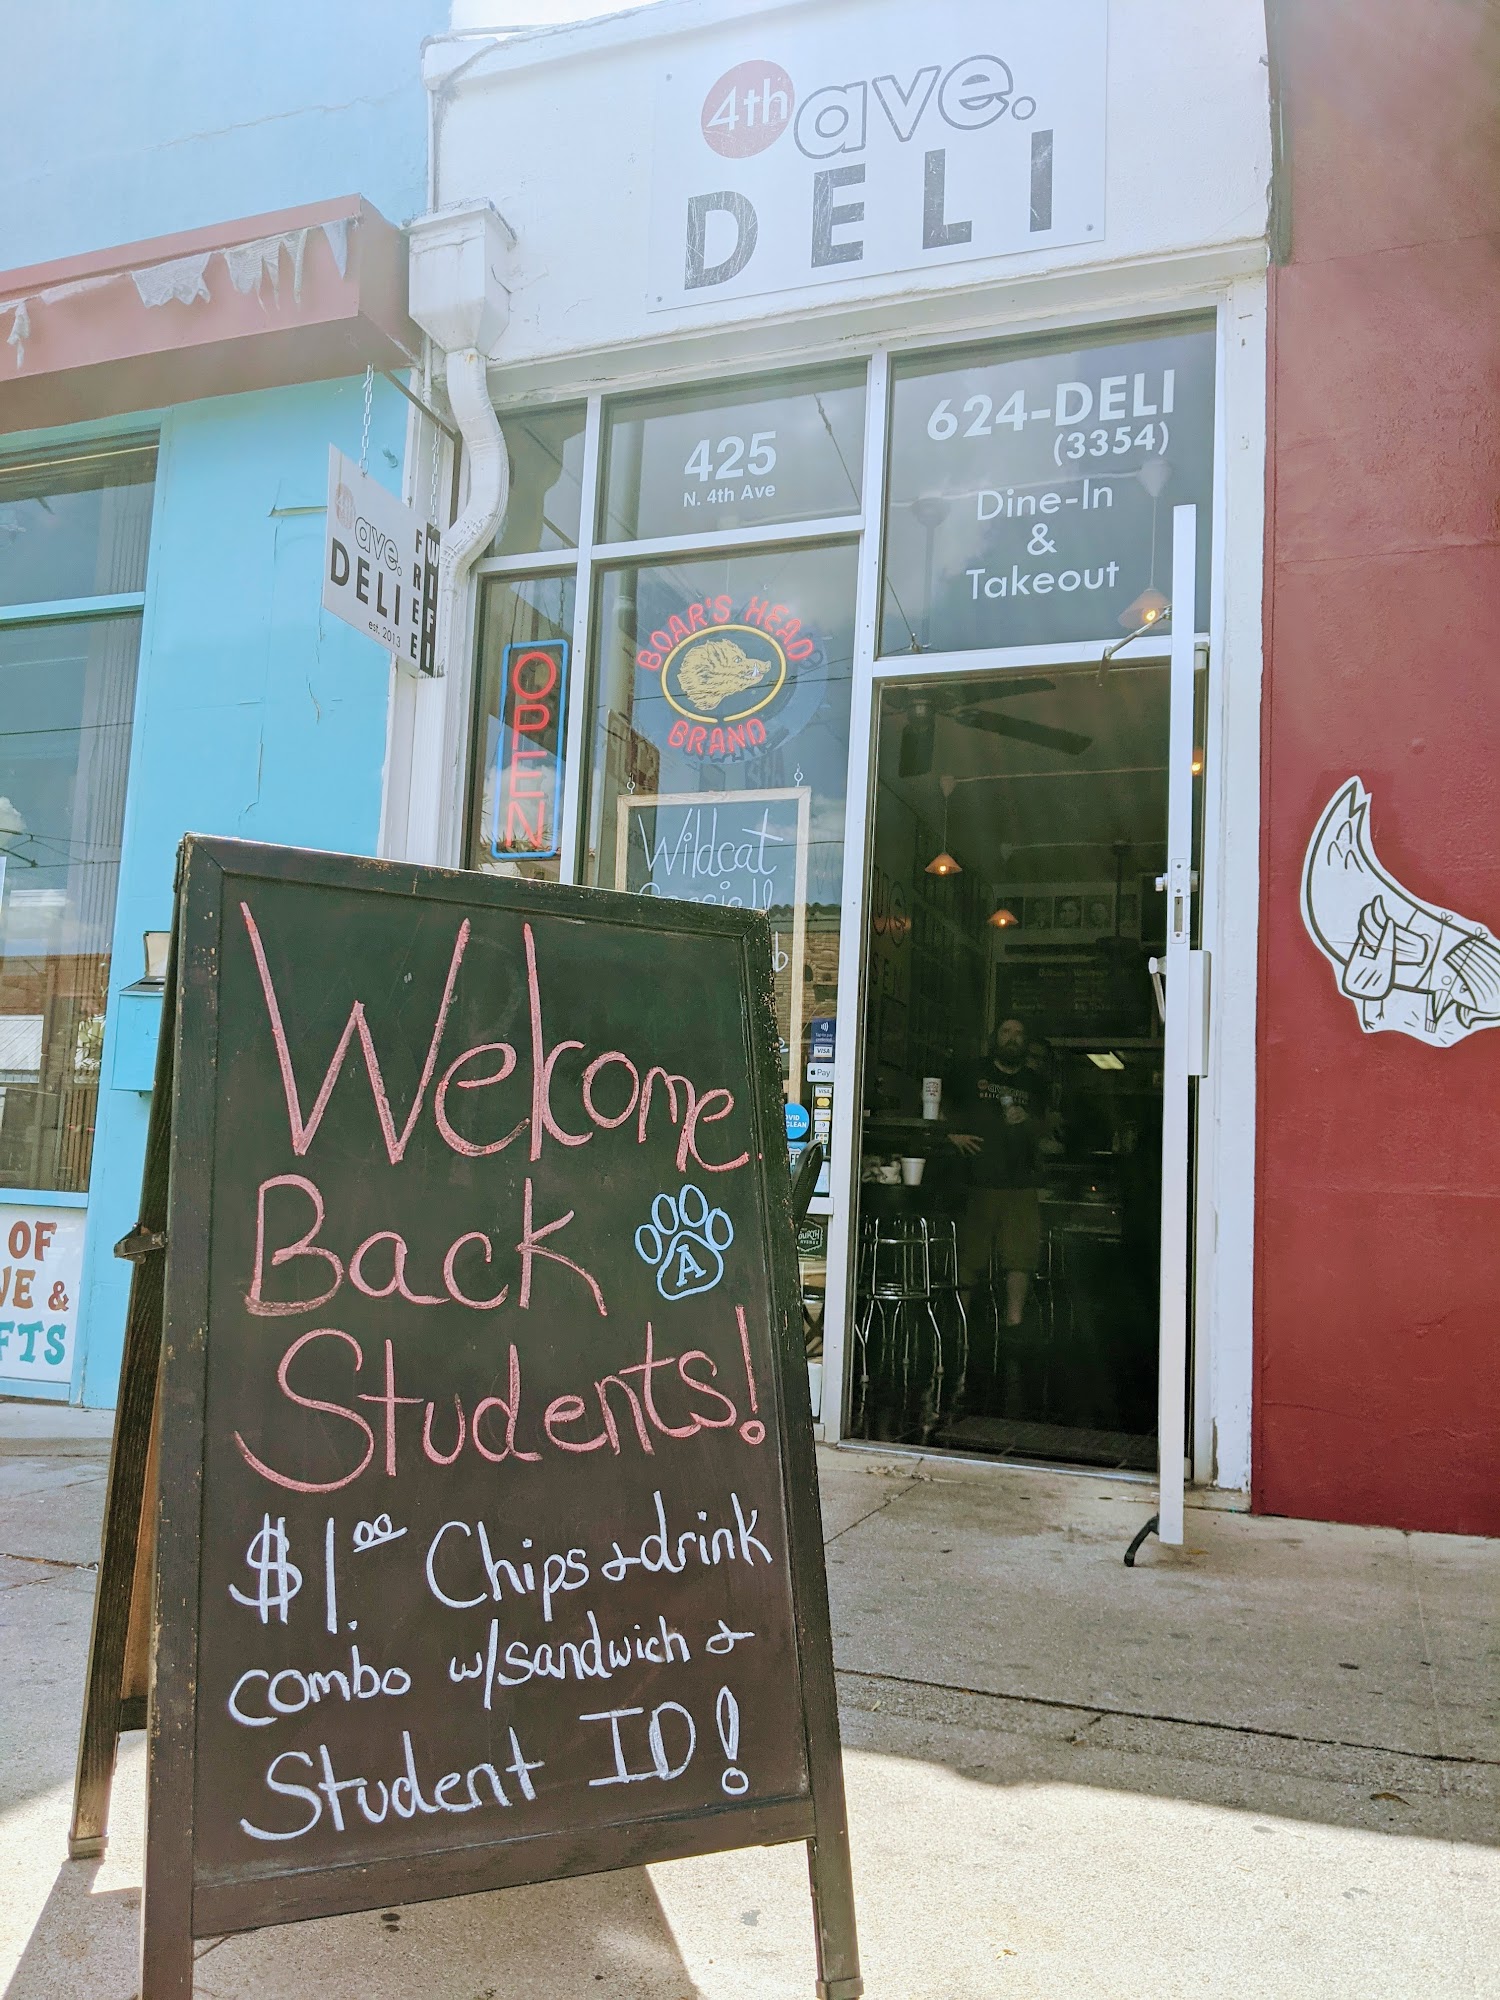 4th ave.
DELI
425
N. 4th Ave
624-DELI
(3354)
Dine-In
&
Takeout
ave.
DELI
est. 2013
FREE
WIFI
OPEN
BOAR'S HEAD
BRAND
Wildcat
Welcome
Back
A
Students!
$1.00 Chips & drink
combo w/sandwich &
Student ID!
OF
&
VISA
Pay
VISA